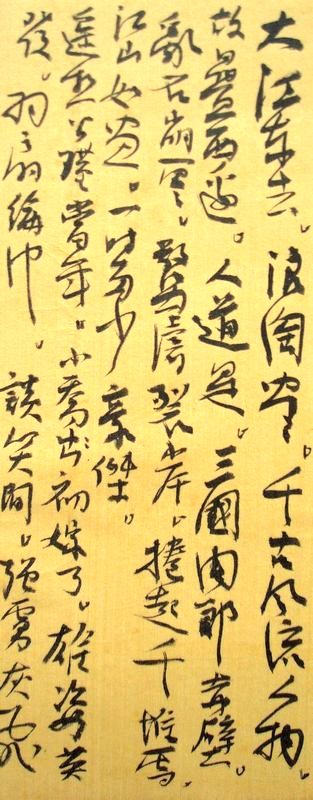 大江东去。浪淘盡。千古风流人物。
故壘西邊。人道是。三國周郎赤壁。
亂石崩雲。驚濤裂岸。捲起千堆雪。
江山如画。一时多少豪傑。
遥想公瑾當年。小喬初嫁了。雄姿英
發。羽扇綸巾。談笑間。强虜灰飛